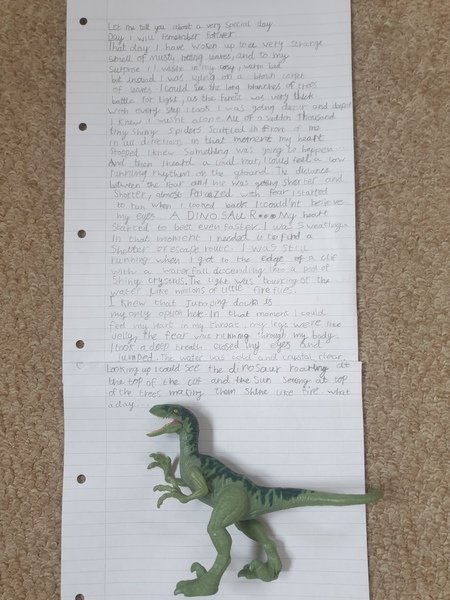 Let me tell you about a very special day
Day I will remember forever
That day I have woken up to a very strange
smell of musty rotting leaves, and to my
surprise I wasnt in my cosy, warm bed
but instead I was lying on a blanket
of leaves I could see the long branches of trees
battle for light, as the forest was very thick
With every step I took I was going deeper and deeper
I knew I wasnt alone. All of a sudden thousand
tiny shiny spiders scuttled in front of me
in all directions in that moment my heart
stopped I knew something was going to happen.
And then I heard a loud roar, I could feel a low
running rhythm on the ground. The distance
between the roar and me was getting shorter and
shorter, almost paralyzed with fear I started
to run when I looked back I couldn't believe
my eyes. A DINOSAUR... My heart
started to beat even faster. I was sweating
In that moment I needed to find a
shelter or escape route. I was still
running when I got to the edge of a clif
with a waterfall descending into a pool of
shiny crystals. The light was bouncing of the
water like millions of little fireflies.
I knew that jumping down is
my only option here in that moment I could
feel my heart in my throat, my legs were like
jelly, the fear was running through my body.
I took a deep breath closed my eyes and
jumped. The water was cold and crystal clear,
Looking up I could see the dinosaur roarling at
the top of the clif and the sun at top
of the trees making them shine like fire. What
a day.